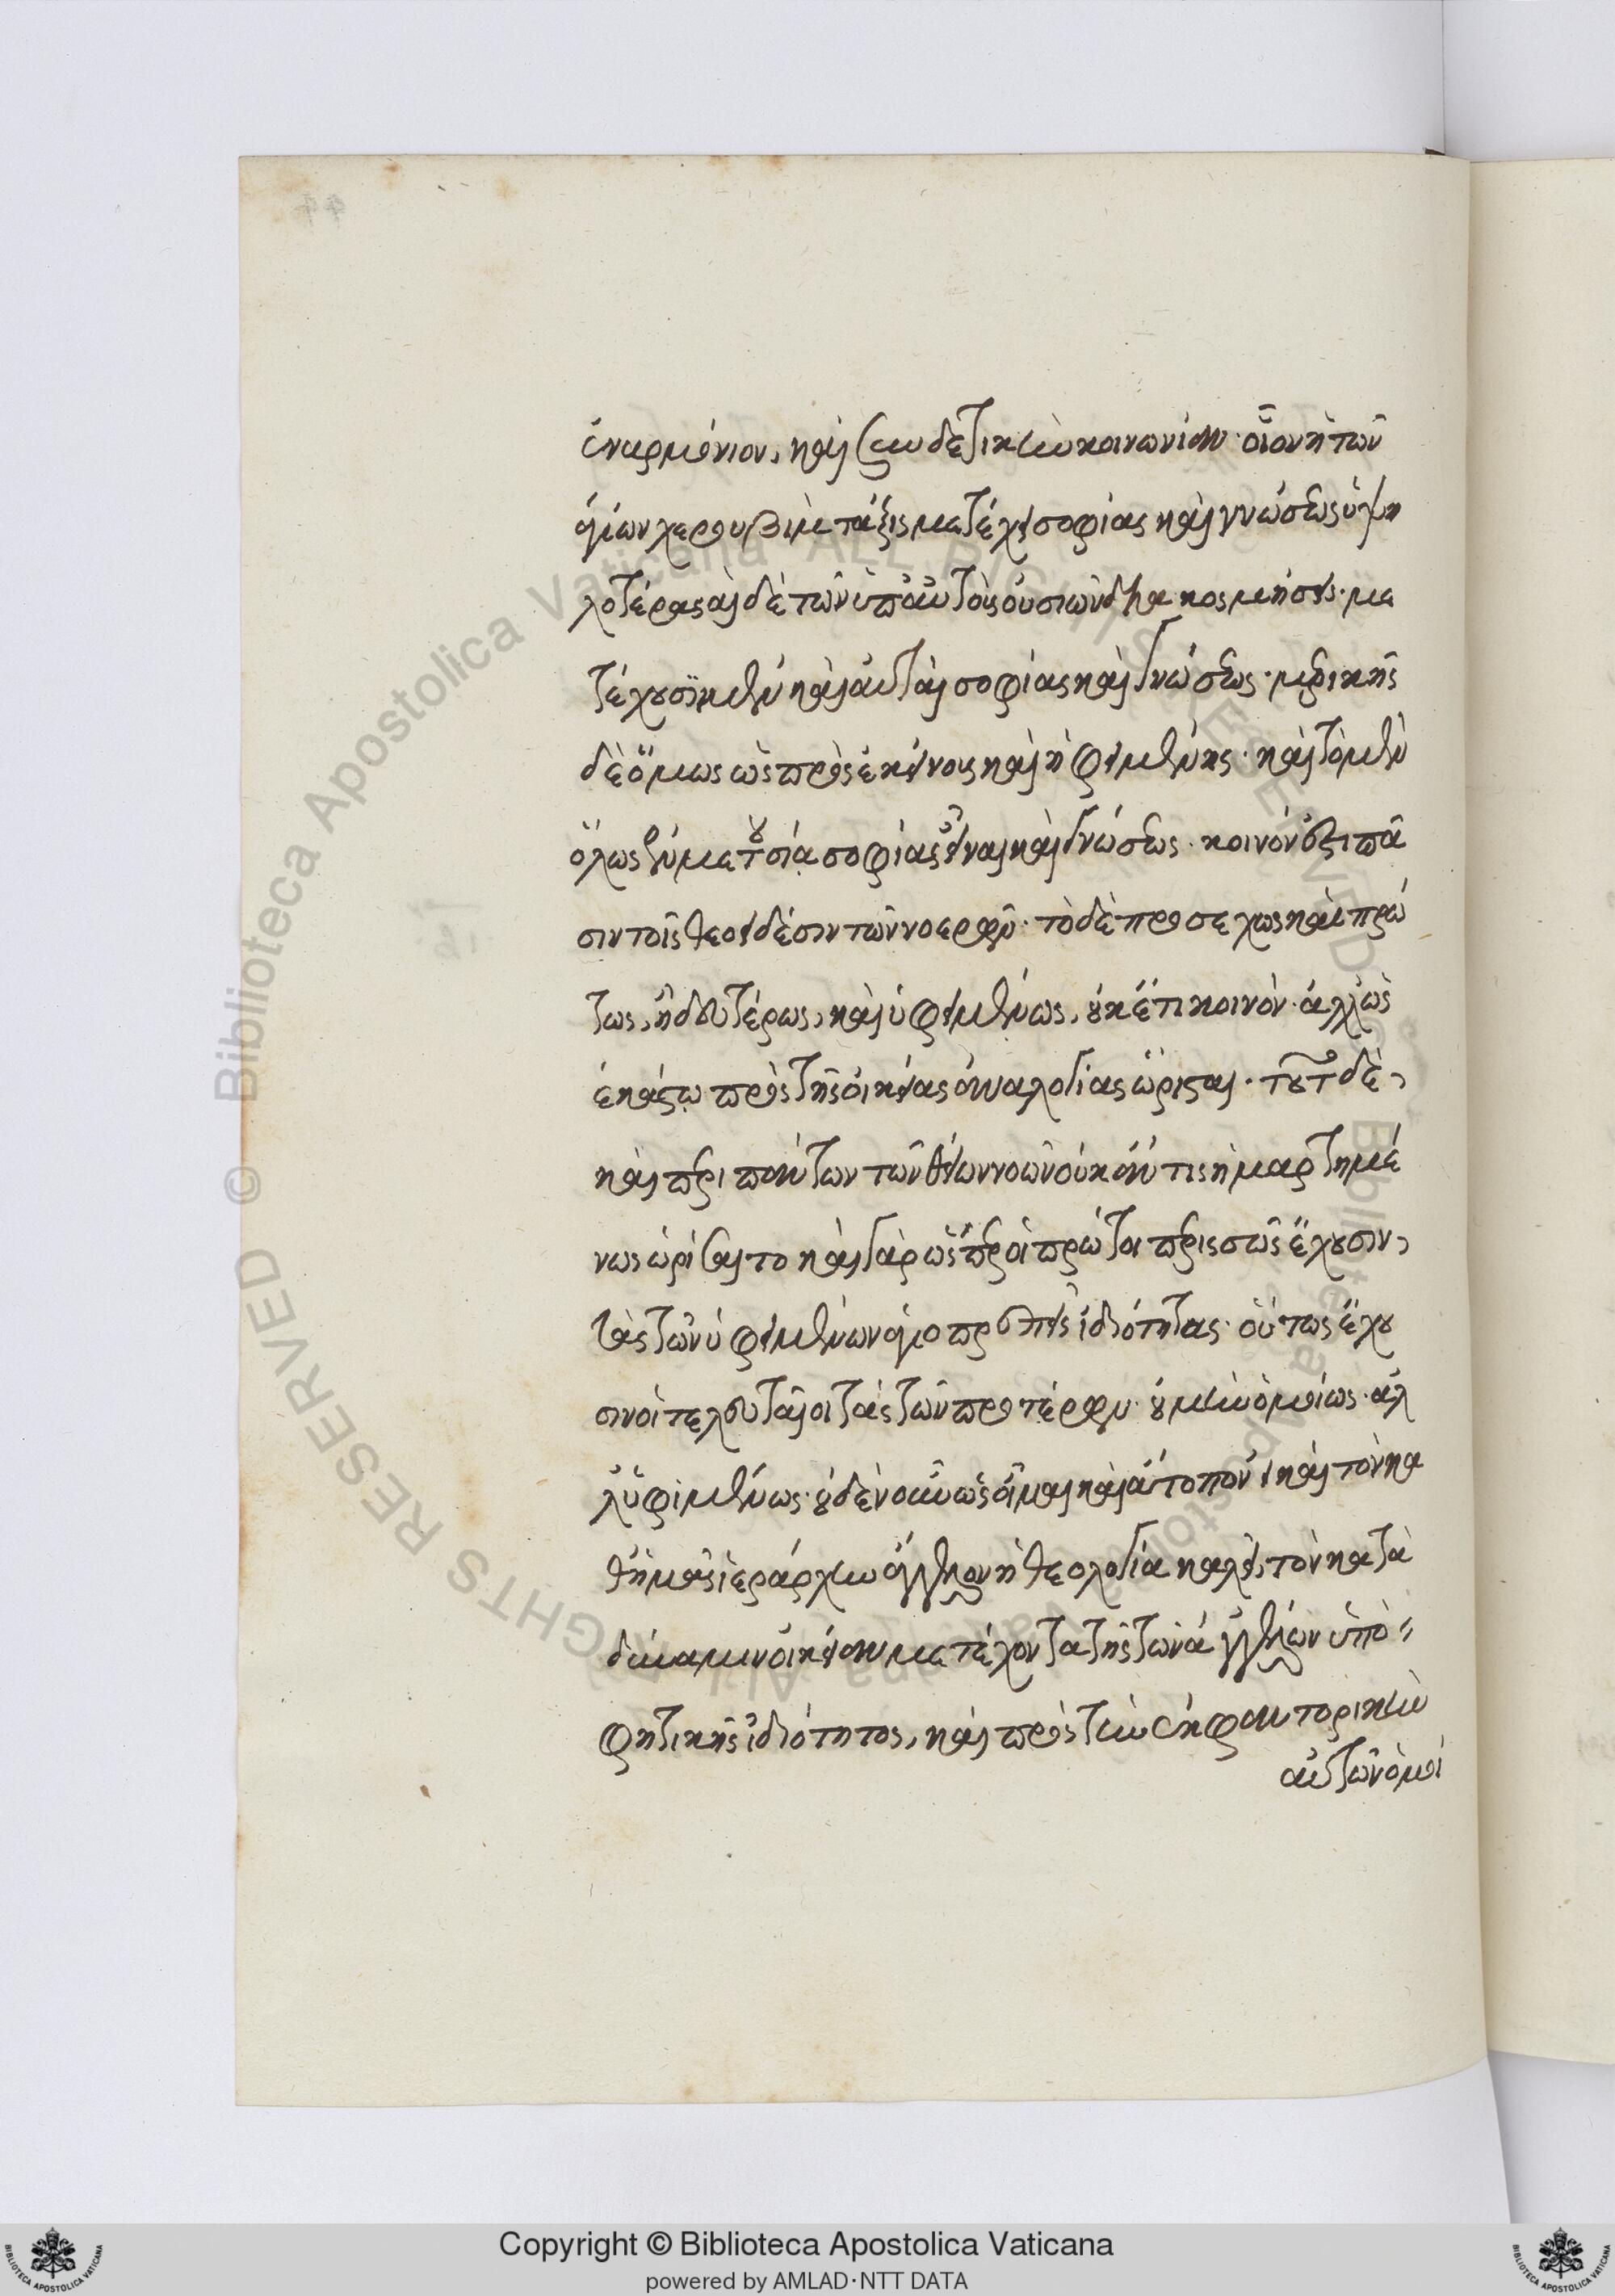 ἐναρμόνιον, καὶ συνδετικὴν κοινωνίαν· οἷον ἡ τῶν
ἁγίων χερουβὶμ τάξις μετέχει σοφίας καὶ γνώσεως ὑψη
λοτέρας αἱ δὲ τῶν ὑπ' αὐτοὺς οὐσιῶν διακοσμήσεις· με
τέχουσι μὲν καὶ αὐταὶ σοφίας καὶ γνώσεως· μερικῆς
δὲ ὅμως ὡς πρὸς ἐκείνους καὶ ὑφειμένης· καὶ τὸ μὲν
ὅλως ἐν μετουσίᾳ σοφίας εἶναι καὶ γνώσεως· κοινόν ἐστι πᾶ
σιν τοῖς θεοειδέσιν τῶν νοερῶν· τὸ δὲ προσεχῶς καὶ πρώ
τως, ἢ δευτέρως, καὶ ὑφειμένως, οὐκέτι κοινὸν· ἀλλ' ὡς
ἑκάστῳ πρὸς τῆς οἰκείας ἀναλογίας ὥρισται. τοῦτο δὲ,
καὶ περὶ πάντων τῶν θείων νοῶν οὐκ ἄν τις ἡμαρτημέ
νως ὁρίσαιτο καὶ γὰρ ὥσπερ οἱ πρῶτοι περισσῶς ἔχουσιν,
τὰς τῶν ὑφειμένων ἁγιοπρεπεῖς ἰδιότητας· οὕτως ἔχου
σιν οἱ τελευταῖοι τὰς τῶν προτέρων· οὐ μὴν ὁμοίως· ἀλ
λ' ὑφιμένως· οὐδὲν οὖν ὡς οἶμαι καὶ ἄτοπον εἰ καὶ τὸν κα
θ' ἡμᾶς ἱεράρχην ἄγγελον ἡ θεολογία καλεῖ, τὸν κατὰ
δύναμιν οἰκείαν μετέχοντα τῆς τῶν ἀγγέλων ὑπο
φητικῆς ἰδιότητος, καὶ πρὸς τὴν ἐκφαντορικὴν
αὐτῶν ὁμοί
Copyright © Biblioteca Apostolica Vaticana
powered by AMLAD·NTT DATA